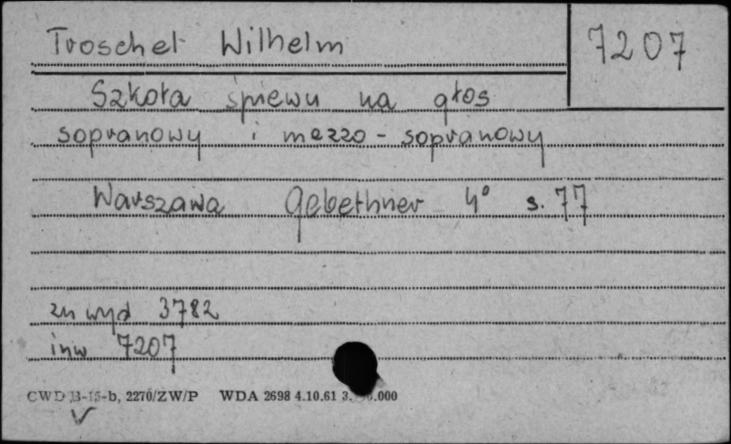 Troschel Wilhelm
7207
Szkoła śpiewu na głos
sopranowy i mezzo-sopranowy
Warszawa Gebethner 4° s. 77
zn wyd 3782
inw 7207
CWD B-15-b, 2270/ZW/P WDA 2698 4.10.61